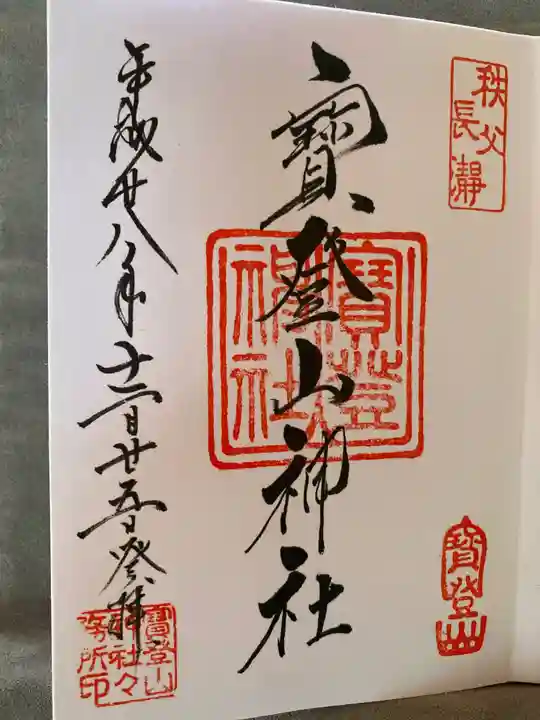 秩父
長瀞
寳登山神社
寳登山
神社
寳登山
平成廿八年十二月廿五日登拝
寳登山
神社々
務所印